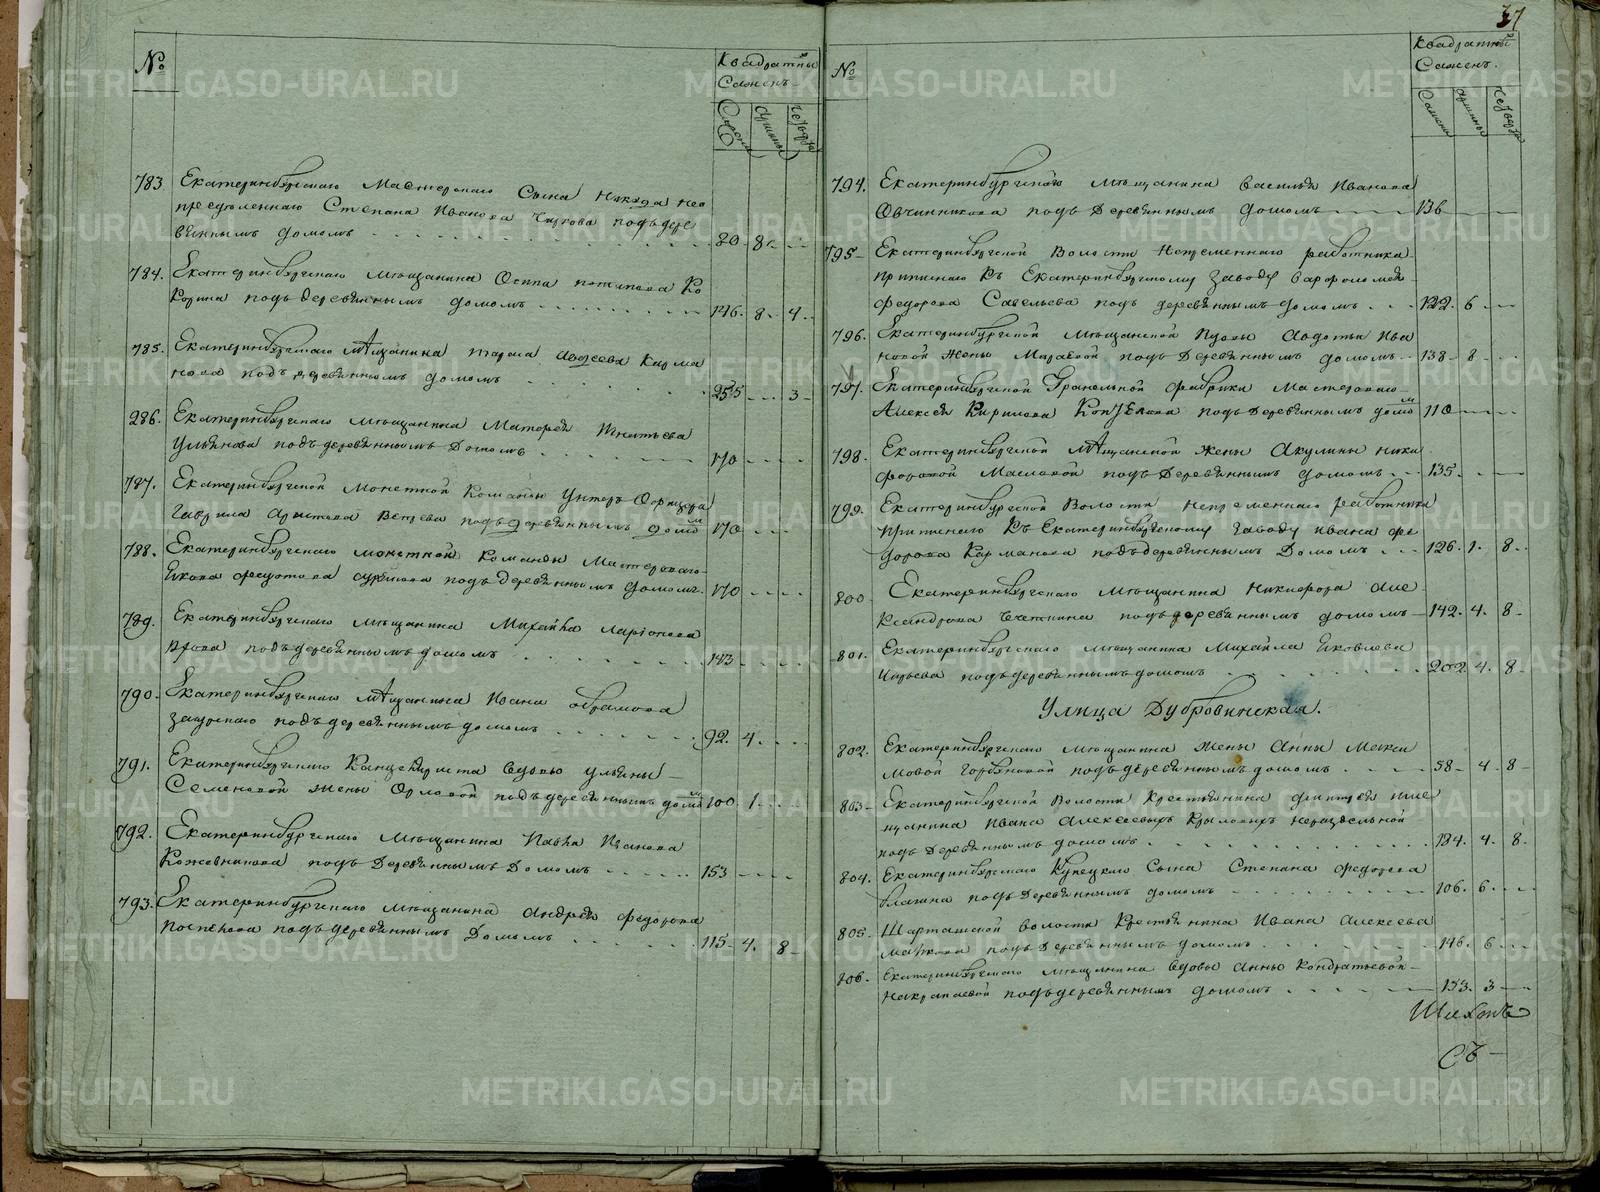 №
Квадратныѣ
Саженъ.
Сажени Аршины Четверти
783 Екатеринбургскаго Мастерскаго Сына никуда нео
предѣленнаго Степана Иванова подъ дере
вяннымъ домомъ 80. 8.
784. Екатеринбургскаго мѣщанина Осипа потапова Ко
подъ деревяннымъ домомъ 146. 8. 4.
785. Екатеринбургскаго мѣщанина Тараса Авдеева Карма
нова подъ деревяннымъ домомъ 255 3
286. Екатеринбургскаго мѣщанина Матвея Игнатьева
Ульянова подъ деревяннымъ Домомъ 170
787. Екатеринбургской Монетной Команды Унтеръ Офицера
Гаврила подъ деревяннымъ домомъ 170
788. Екатеринбургскаго монетной Команды Мастероваго
Якова Федотова подъ деревяннымъ домомъ. 170
789. Екатеринбургскаго мѣщанина Михайла Ларіонова
подъ деревяннымъ домомъ 143
790. Екатеринбургскаго мѣщанина Ивана Обрамова
подъ деревяннымъ домомъ 92. 4.
791. Екатеринбургскаго Канцеляриста вдовы Ульяны
Семеновой жены Орловой подъ деревяннымъ домомъ 100 1
792. Екатеринбургскаго Мѣщанина Павла Иванова
Кожевникова подъ Деревяннымъ Домомъ 153
793. Екатеринбургскаго мѣщанина Андрея Федорова
Поспелова подъ деревяннымъ Домомъ 115 4. 8
37
№
Квадратныѣ
Сажень.
Сажени Аршины Четверти
794. Екатеринбургскаго мѣщанина Василья Иванова
Овчинникова подъ Деревяннымъ домомъ 136
795 Екатеринбургской Волости Непременнаго работника
приписнаго Къ Екатеринбургскому заводу Варфоломея
Федорова Савельева подъ деревяннымъ домомъ 122. 6
796. Екатеринбургской мѣщанской вдовы Авдотьи Ива
новой жены подъ Деревяннымъ домомъ 138 8
797. Екатеринбургской Гранильной фабрики Мастероваго
Алексея Кирилова подъ Деревяннымъ домомъ 110
798. Екатеринбургской мѣщанской жены Акулины Ники
форовой подъ Деревяннымъ домомъ 135.
799. Екатеринбургской Волости непременнаго работника
приписнаго Къ Екатеринбургскому заводу Ивана Фе
дорова Карманова подъ деревяннымъ Домомъ 126. 1. 8
800 Екатеринбургскаго мѣщанина Никифора Але
ксандрова подъ деревяннымъ домомъ 142. 4. 8
801. Екатеринбургскаго мѣщанина Михайла Яковлева
подъ деревяннымъ домомъ 202. 4. 8
Улица Дубровинская.
802. Екатеринбургскаго мѣщанина жены Анны Макси
мовой Горбуновой подъ деревяннымъ домомъ 58 4 8
803 Екатеринбургской Волости Крестьянина Дмитрея и ме
щанина Ивана Алексеевыхъ Крыловыхъ нераздельной
подъ Деревяннымъ домомъ 184. 4. 8.
804. Екатеринбургскаго Купецкаго Сына Степана Федорова
подъ Деревяннымъ домомъ 106. 6
805. Шарташской волости Крестьянина Ивана Алексеева
подъ Деревяннымъ домомъ 146. 6
806. Екатеринбургскаго мѣщанина вдовы Анны Кондратьевой
подъ деревяннымъ домомъ 153. 3
съ
METRIKI.GASO-URAL.RU